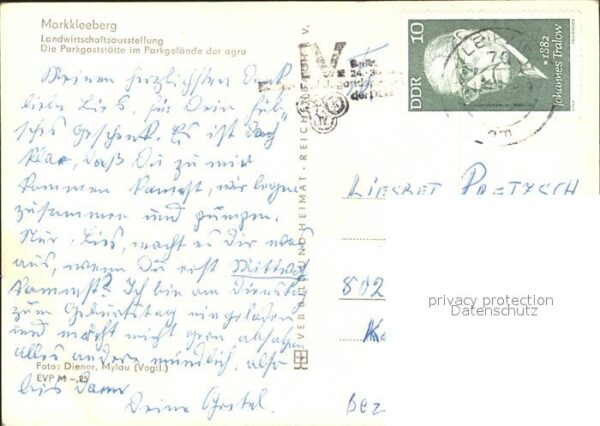 Markkleeberg
Landwirtschaftsausstellung
Die Parkgaststätte im Parkgelände der agra
Meinen herzlichsten Dank
liebe Lies, für Dein hüb-
sches Geschenk. Es ist doch
klar, daß Du zu mir
kommen kannst, wir legen
zusammen und pumpen.
Nur, Lies, macht es Dir was
aus, wenn Du erst Mittwoch
kommst? Ich bin am Dienstag
zum Geburtstag eingeladen
und möcht nicht gern absagen
alles andere mündlich, also
bis dann
Deine
Foto: Diener, Mylau (Vogtl.)
EVP M -,25
VEB BILD UND HEIMAT · REICHENBACH I. V.
DDR 10
Johannes Tralow
* 1882
LEIPZIG
70
Liesbet
802
Bez
privacy protection
Datenschutz